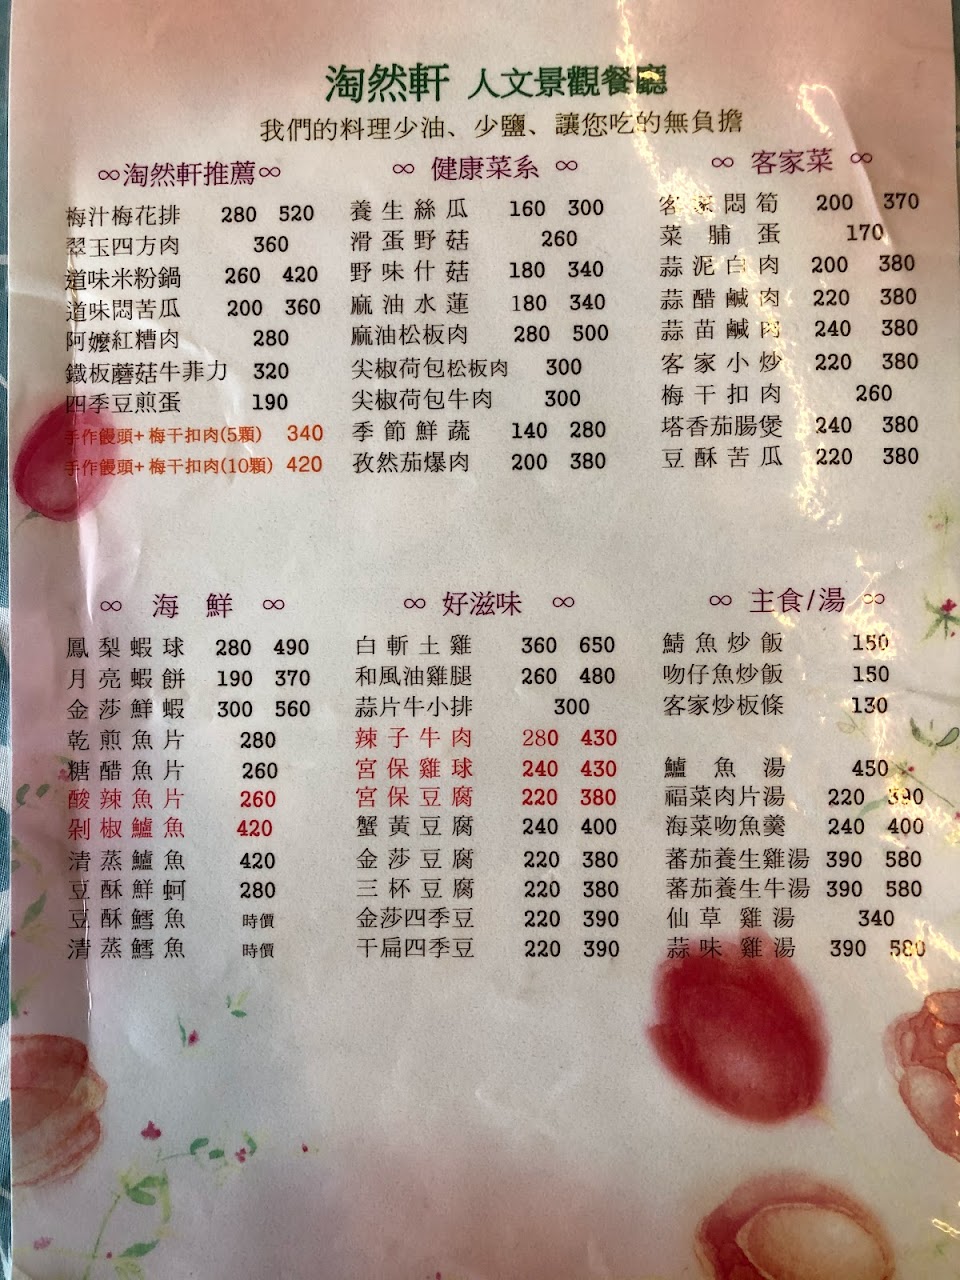 淘然軒 人文景觀餐廳
我們的料理少油、少鹽、讓您吃的無負擔
∞淘然軒推薦∞
梅汁梅花排 280 520
翠玉四方肉 360
道味米粉鍋 260 420
道味悶苦瓜 200 360
阿嬤紅糟肉 280
鐵板蘑菇牛菲力 320
四季豆煎蛋 190
手作饅頭+梅干扣肉(5顆) 340
手作饅頭+梅干扣肉(10顆) 420
∞ 健康菜系 ∞
養生絲瓜 160 300
滑蛋野菇 260
野味什菇 180 340
麻油水蓮 180 340
麻油松板肉 280 500
尖椒荷包松板肉 300
尖椒荷包牛肉 300
季節鮮蔬 140 280
孜然茄爆肉 200 380
∞ 客家菜 ∞
客家悶筍 200 370
菜脯蛋 170
蒜泥白肉 200 380
蒜醋鹹肉 220 380
蒜苗鹹肉 240 380
客家小炒 220 380
梅干扣肉 260
塔香茄腸煲 240 380
豆酥苦瓜 220 380
∞ 海鮮 ∞
鳳梨蝦球 280 490
月亮蝦餅 190 370
金莎鮮蝦 300 560
乾煎魚片 280
糖醋魚片 260
酸辣魚片 260
剁椒鱸魚 420
清蒸鱸魚 420
豆酥鮮蚵 280
豆酥鱈魚 時價
清蒸鱈魚 時價
∞ 好滋味 ∞
白斬土雞 360 650
和風油雞腿 260 480
蒜片牛小排 300
辣子牛肉 280 430
宮保雞球 240 430
宮保豆腐 220 380
蟹黃豆腐 240 400
金莎豆腐 220 380
三杯豆腐 220 380
金莎四季豆 220 390
干扁四季豆 220 390
∞ 主食/湯 ∞
鯖魚炒飯 150
吻仔魚炒飯 150
客家炒板條 130
鱸魚湯 450
福菜肉片湯 220 390
海菜吻魚羹 240 400
蕃茄養生雞湯 390 580
蕃茄養生牛湯 390 580
仙草雞湯 340
蒜味雞湯 390 580